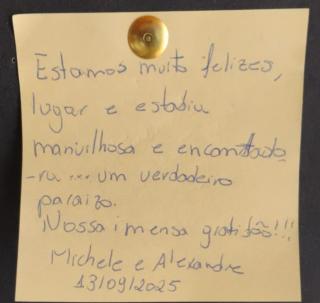 Estamos muito felizes,
lugar e estadia
maravilhosa e encantado
-ra... um verdadeiro
paraizo.
Nossa imensa gratidão!!!
Michele e Alexandre
13/09/2025